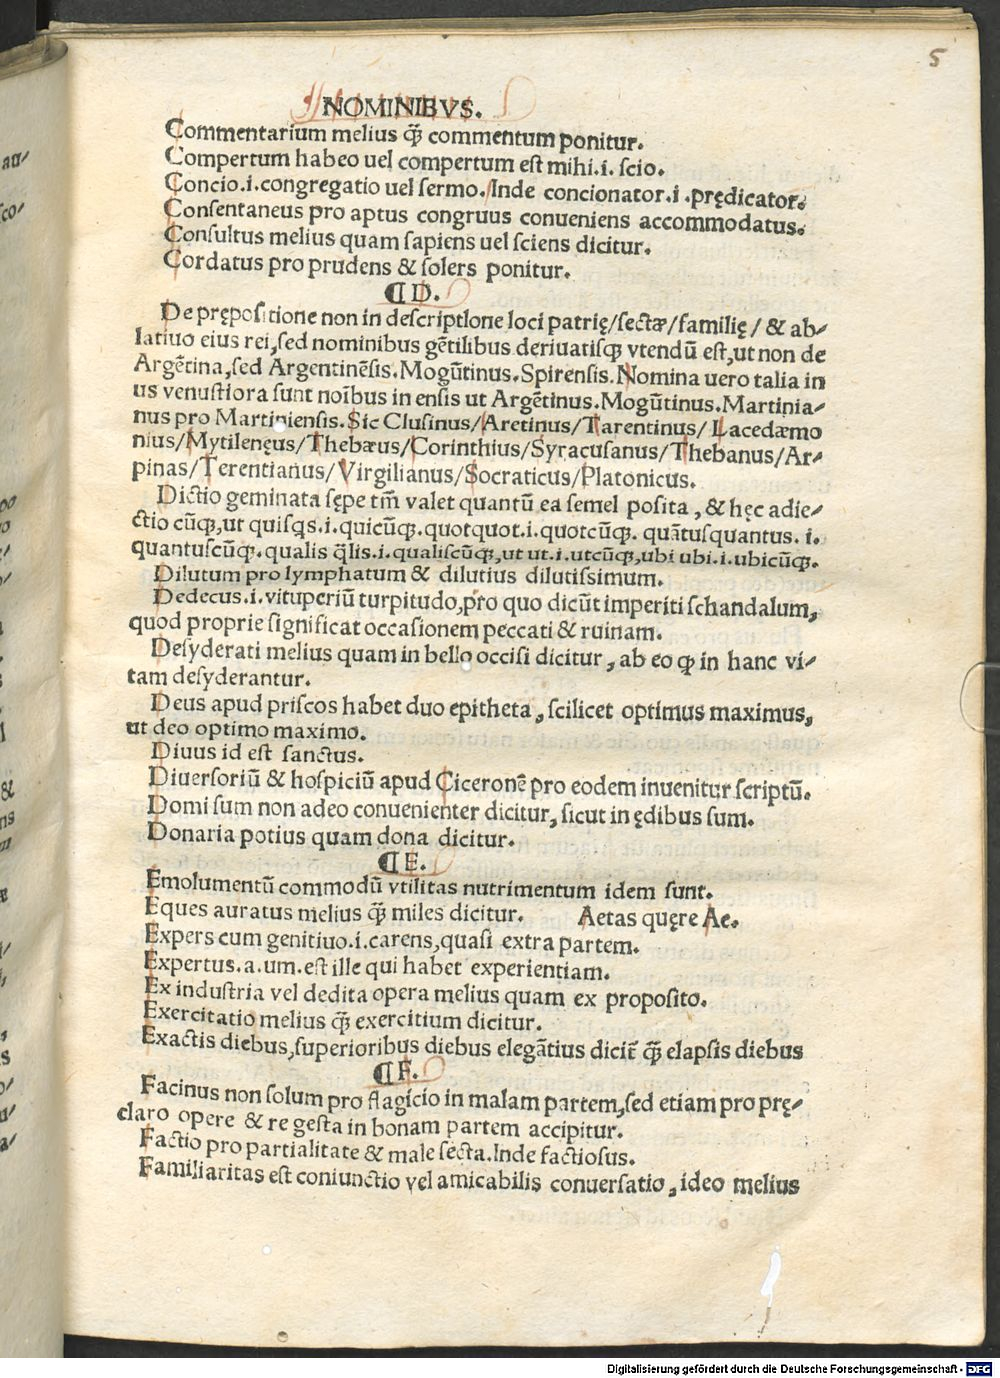 5
NOMINIBVS.
Commentarium melius q̃ commentum ponitur.
Compertum habeo uel compertum est mihi.i. scio.
Concio.i.congregatio uel sermo. Inde concionator.i .prędicator.
Consentaneus pro aptus congruus conueniens accommodatus.
Consultus melius quam sapiens uel sciens dicitur.
Cordatus pro prudens & solers ponitur.
¶ D.
De prępositione non in descriptIone loci patrię/sectæ/familię/ & ab/
latiuo eius rei,sed nominibus gẽtilibus deriuatisq; vtendũ est,ut non de
Argẽtina,sed Argentinẽsis.Mogũtinus.Spirensis.Nomina uero talia in
us venustiora sunt noĩbus in ensis ut Argẽtinus.Mogũtinus.Martinia/
nus pro Martiniensis.Sic Clusinus/Aretinus/Tarentinus/Lacedæmo
nius/Mytilenęus/Thebæus/Corinthius/Syracusanus/Thebanus/Ar/
pinas/Terentianus/Virgilianus/Socraticus/Platonicus.
Dictio geminata sępe tm̃ valet quantũ ea semel posita, & hęc adie/
ctio cũq;,ut quisq̃s.i.quicũq;.quotquot.i.quotcũq;. quãtusquantus. i.
quantuscũq;.qualis q̃lis.i.qualiscũq;,ut ut.i.utcũq;,ubi ubi.i.ubicũq;.
Dilutum pro lymphatum & dilutius dilutissimum.
Dedecus.i.vituperiũ turpitudo,pro quo dicũt imperiti schandalum,
quod proprie significat occasionem peccati & ruinam.
Desyderati melius quam in bello occisi dicitur, ab eo ꝙ in hanc vi/
tam desyderantur.
Deus apud priscos habet duo epitheta, scilicet optimus maximus,
ut deo optimo maximo.
Diuus id est sanctus.
Diuersoriũ & hospiciũ apud Ciceronẽ pro eodem inuenitur scriptũ.
Domi sum non adeo conuenienter dicitur, sicut in ędibus sum.
Donaria potius quam dona dicitur.
¶ E.
Emolumentũ commodũ vtilitas nutrimentum idem sunt.
Eques auratus melius q̃ miles dicitur. Aetas quęre Ae.
Expers cum genitiuo.i.carens,quasi extra partem.
Expertus.a.um.est ille qui habet experientiam.
Ex industria vel dedita opera melius quam ex proposito.
Exercitatio melius q̃ exercitium dicitur.
Exactis diebus,superioribus diebus elegãtius dicit̃ q̃ elapsis diebus
¶ F.
Facinus non solum pro flagicio in malam partem,sed etiam pro prę/
claro opere & re gesta in bonam partem accipitur.
Factio pro partialitate & male secta.Inde factiosus.
Familiaritas est coniunctio vel amicabilis conuersatio, ideo melius
Digitalisierung gefördert durch die Deutsche Forschungsgemeinschaft - DFG